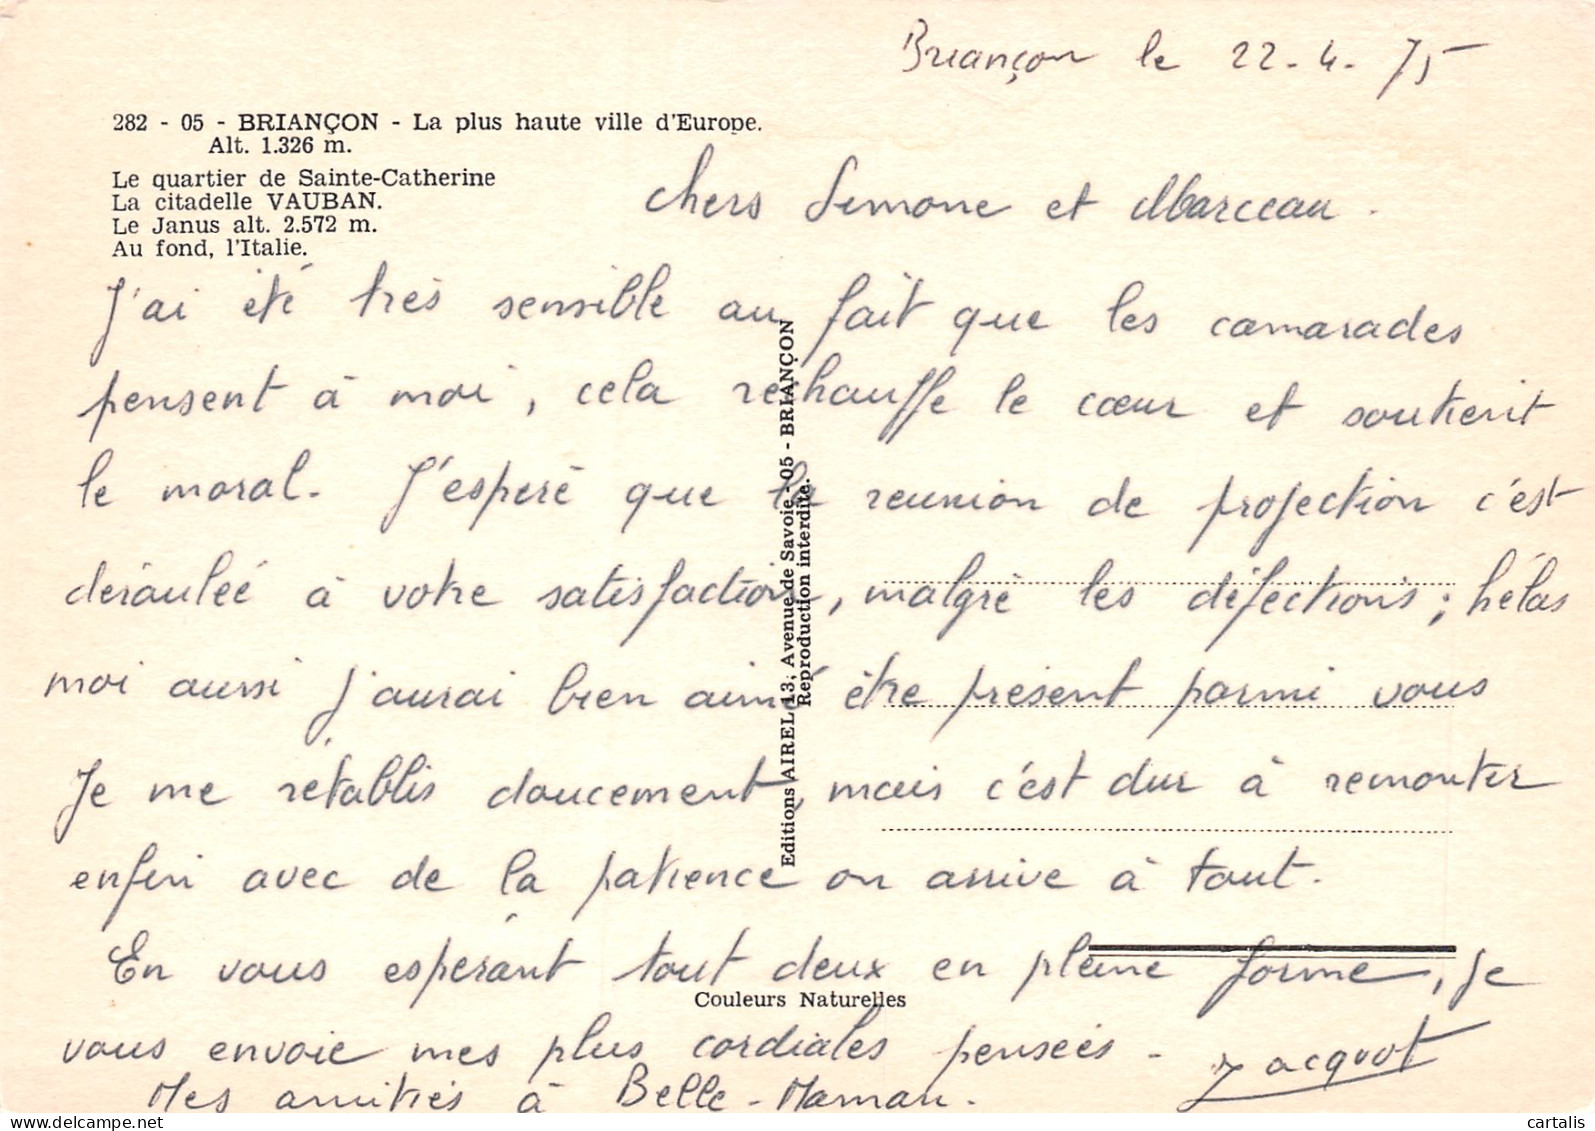 Briançon le 22-4-75
282 - 05 - BRIANÇON - La plus haute ville d'Europe.
Alt. 1.326 m.
Le quartier de Sainte-Catherine
La citadelle VAUBAN.
Le Janus alt. 2.572 m.
Au fond, l'Italie.
Chers Simone et Marceau.
J'ai été très sensible au fait que les camarades
pensent à moi, cela réchauffe le cœur et soutient
le moral. J'espère que la réunion de projection c'est
déraulée à votre satisfaction, malgré les défections ; hélas
moi aussi j'aurai bien aimé être présent parmi vous
Je me rétablis doucement, mais c'est dur à remonter
enfin avec de la patience on arrive à tout.
En vous espérant tout deux en pleine forme, je
vous envoie mes plus cordiales pensées - Jacquot
Mes amitiés à Belle-Maman.
Editions AIREL 13, Avenue de Savoie - 05 - BRIANÇON
Reproduction interdite.
Couleurs Naturelles
cartalis